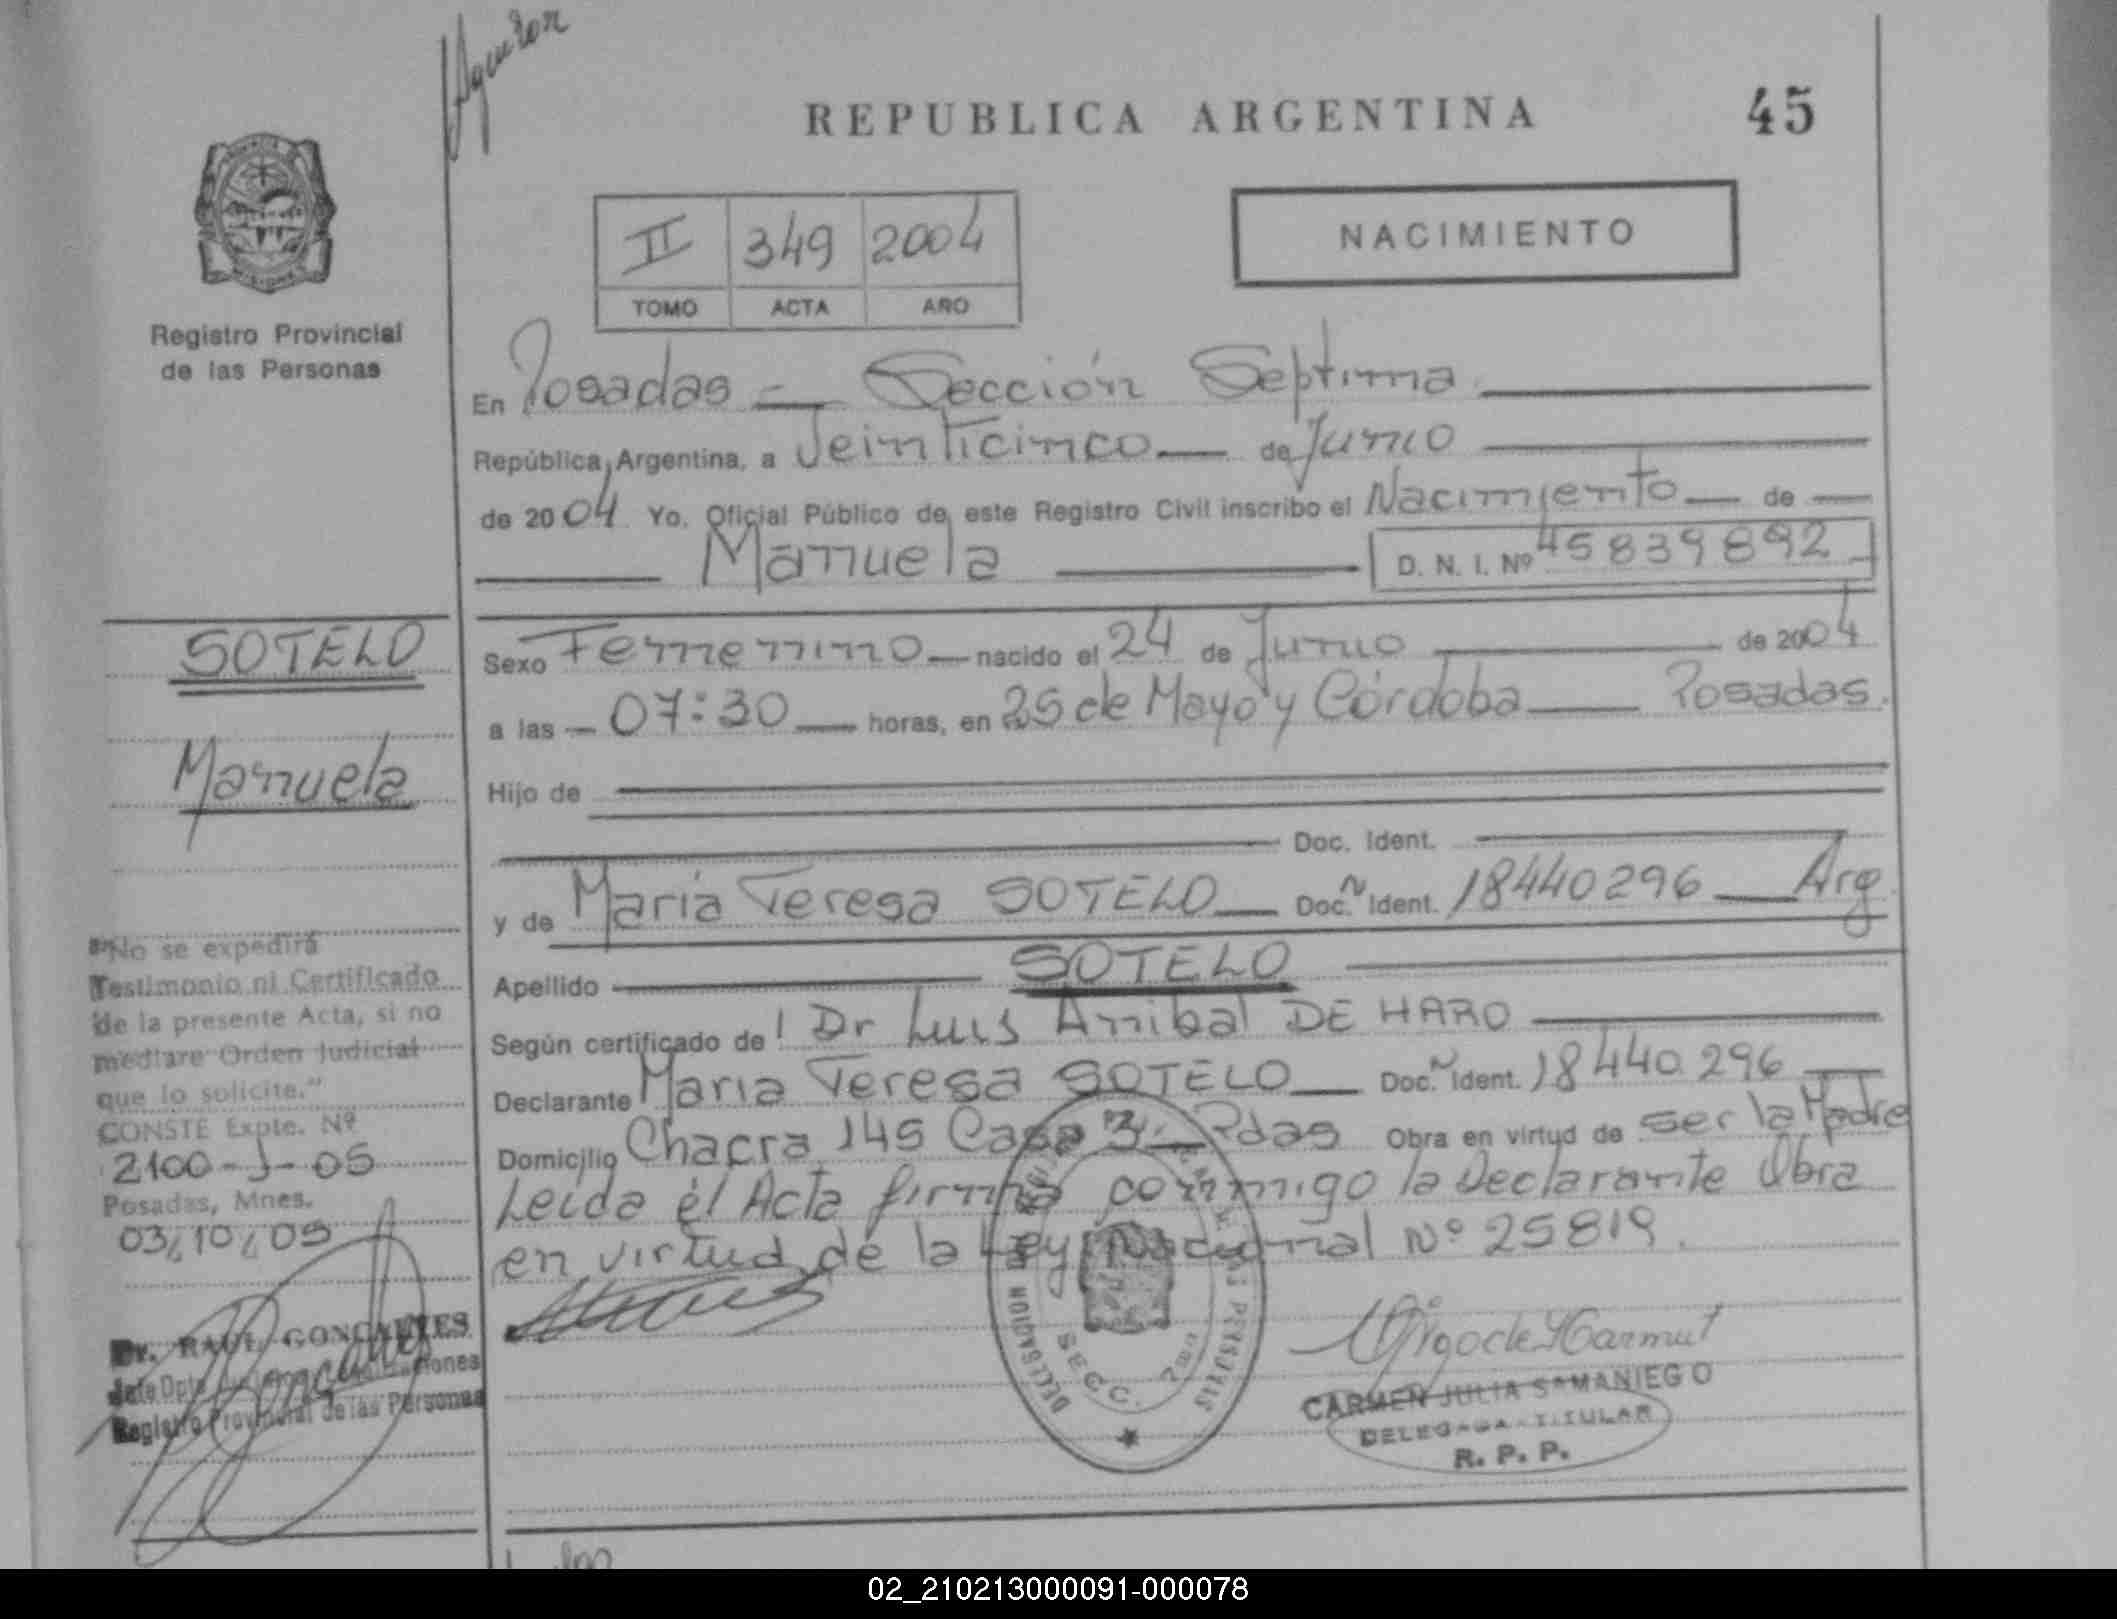 Aguilar
REPUBLICA ARGENTINA 45
II 349 2004
TOMO ACTA AÑO
NACIMIENTO
Registro Provincial
de las Personas
En Posadas - Sección Septima
República Argentina, a Veinticinco de Junio
de 2004 Yo, Oficial Público de este Registro Civil inscribo el Nacimiento de
Manuela D. N. I. Nº 45839892
SOTELO
Manuela
Sexo Femenino nacido el 24 de Junio de 2004
a las 07:30 horas, en 25 de Mayo y Córdoba Posadas.
Hijo de
Doc. Ident.
y de María Teresa SOTELO Doc. Ident. 18440296 Arg
Apellido SOTELO
Según certificado de Dr Luis Anibal DE HARO
Declarante María Teresa SOTELO Doc. Ident. 18440.296
Domicilio Chacra 145 Casa 3 Pdas Obra en virtud de ser la Madre
Leída el Acta firma conmigo la Declarante Obra
en virtud de la Ley Nacional Nº 25819.
"No se expedirá
Testimonio ni Certificado
de la presente Acta, si no
mediare Orden Judicial
que lo solicite."
CONSTE Expte. Nº
2100-J-05
Posadas, Mnes.
03,10,05
Dr. RAUL GONCALVES
Jefe Dpto.
Registro Provincial de las Personas
DELEGACION
SECC. 7
CARMEN JULIA SAMANIEGO
DELEGADA TITULAR
R. P. P.
02_210213000091-000078